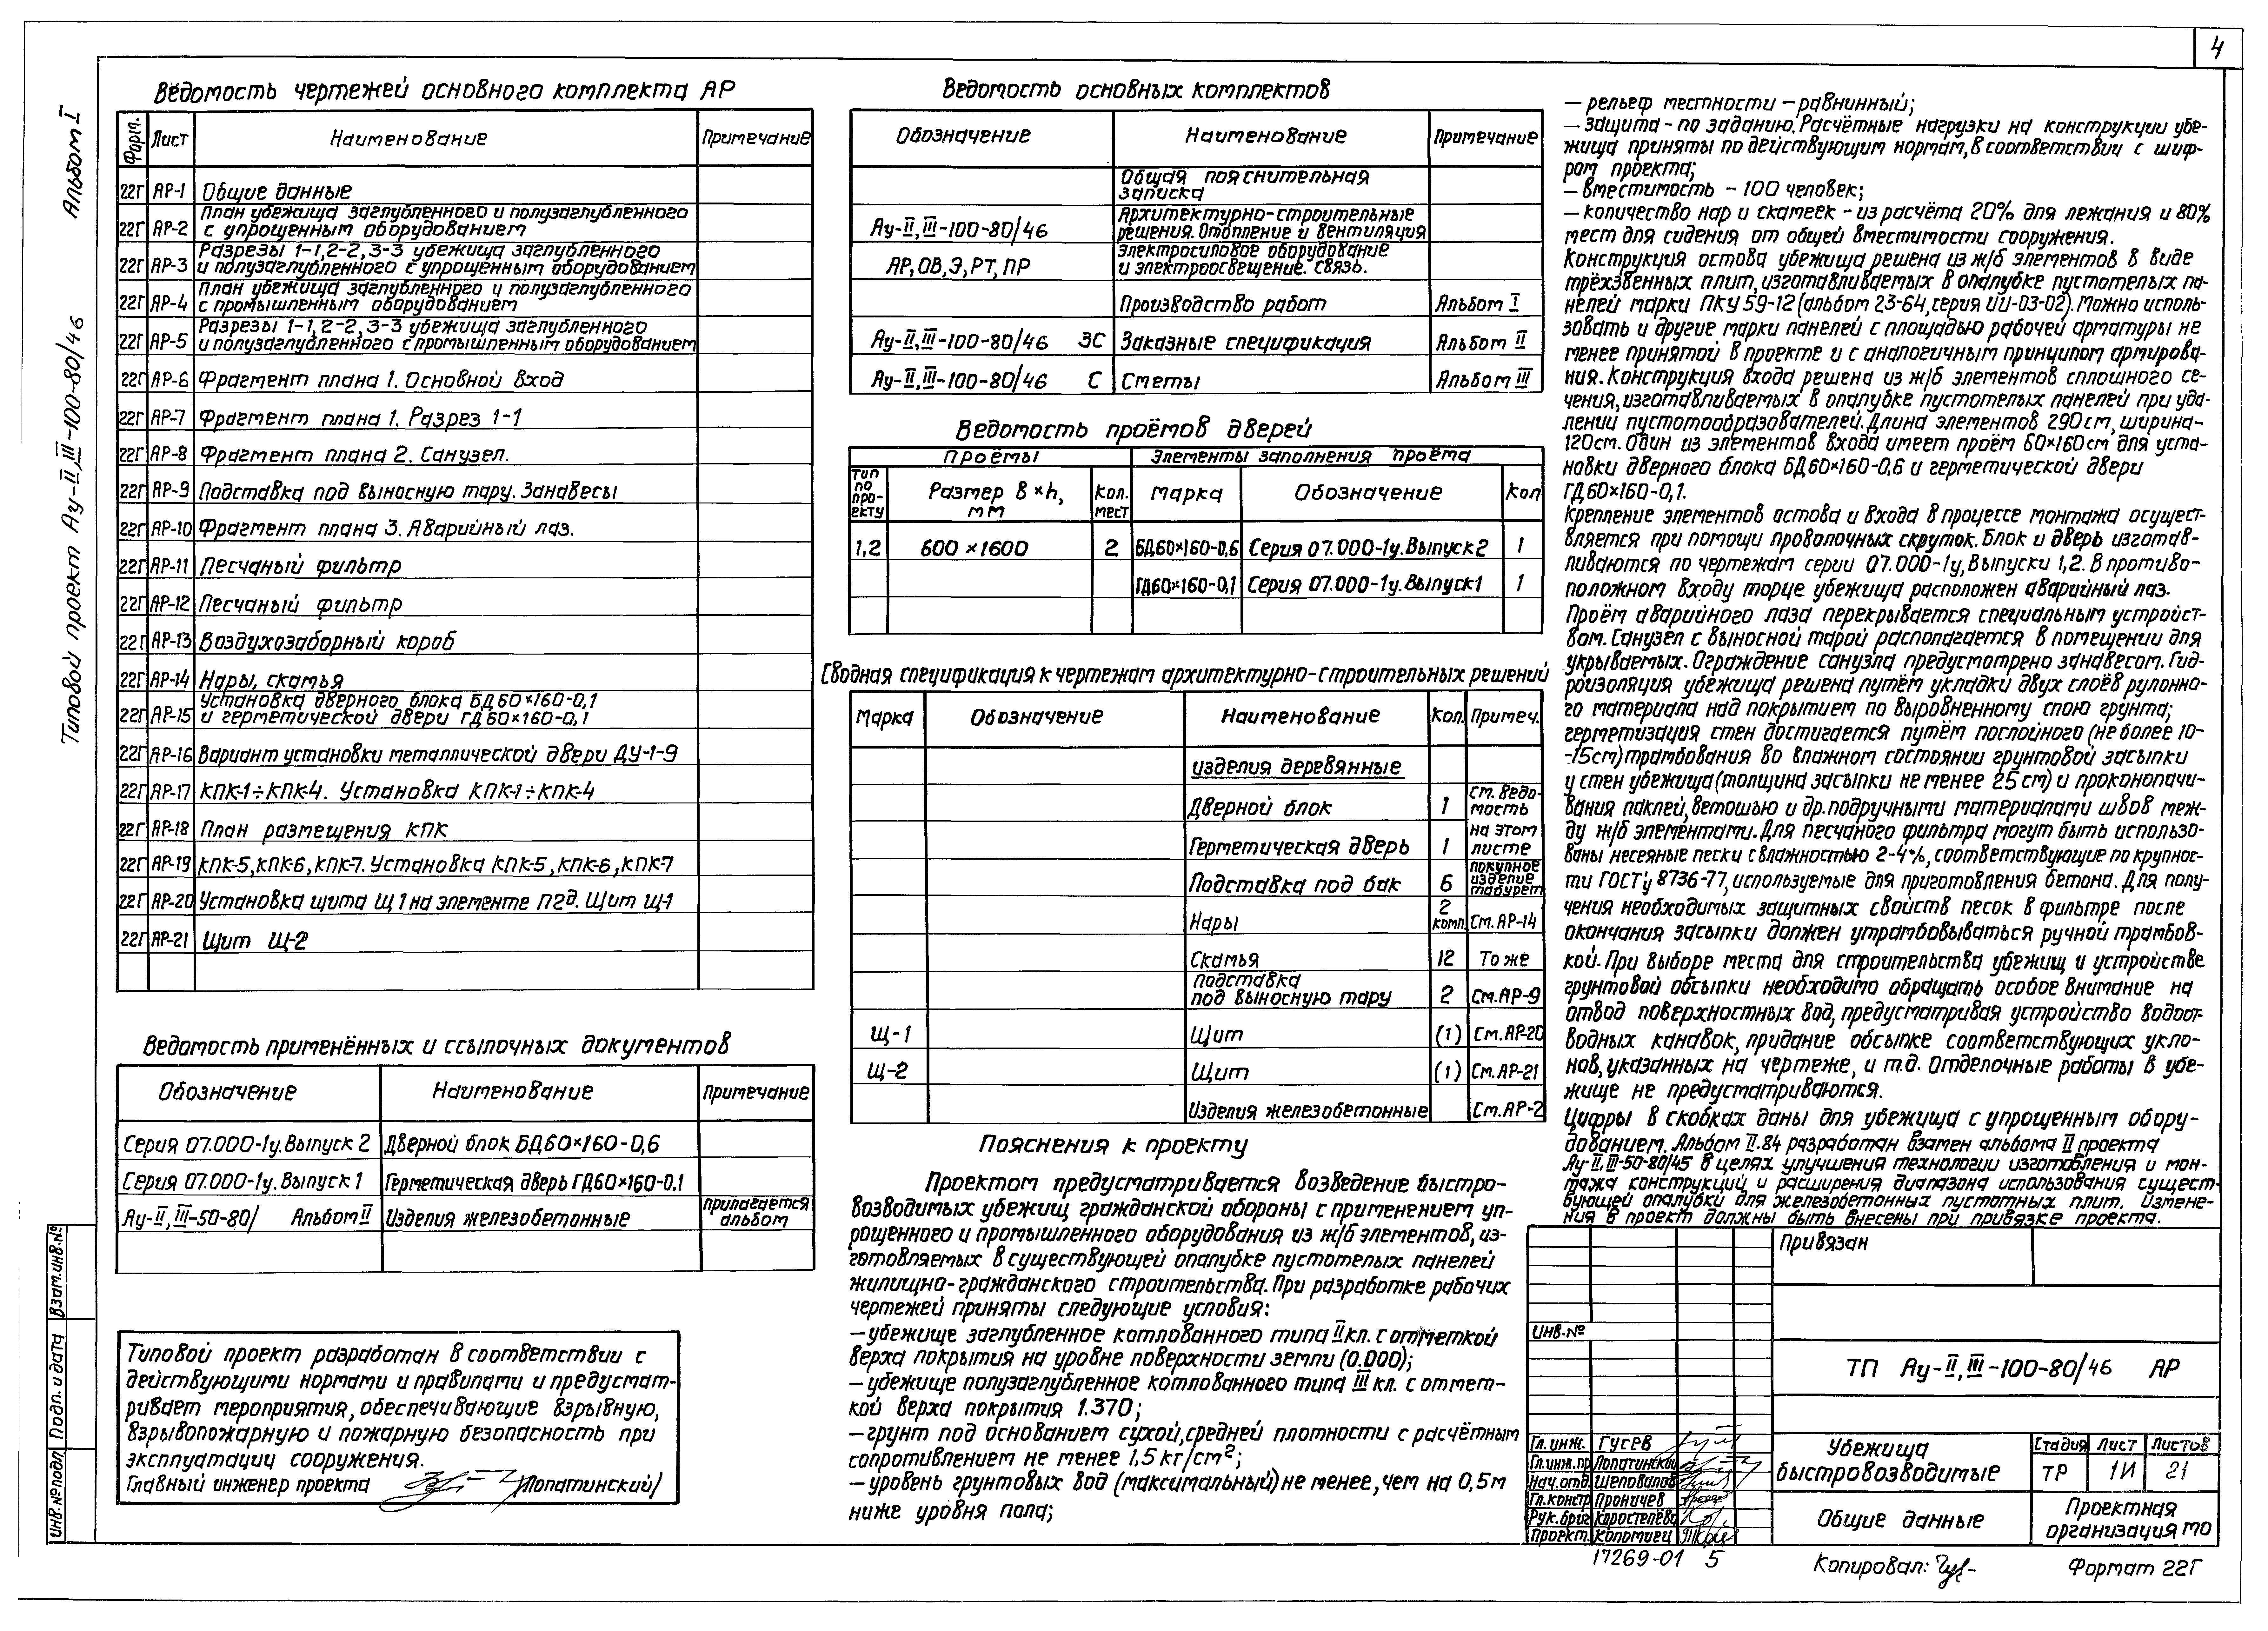 4
Альбом I
Типовой проект Ау-II,III-100-80/46
Ведомость чертежей основного комплекта АР
Форм. Лист Наименование Примечание
22Г АР-1 Общие данные
22Г АР-2 План убежища заглубленного и полузаглубленного
с упрощенным оборудованием
22Г АР-3 Разрезы 1-1, 2-2, 3-3 убежища заглубленного
и полузаглубленного с упрощенным оборудованием
22Г АР-4 План убежища заглубленного и полузаглубленного
с промышленным оборудованием
22Г АР-5 Разрезы 1-1, 2-2, 3-3 убежища заглубленного
и полузаглубленного с промышленным оборудованием
22Г АР-6 Фрагмент плана 1. Основной вход
22Г АР-7 Фрагмент плана 1. Разрез 1-1
22Г АР-8 Фрагмент плана 2. Санузел.
22Г АР-9 Подставка под выносную тару. Занавесы
22Г АР-10 Фрагмент плана 3. Аварийный лаз.
22Г АР-11 Песчаный фильтр
22Г АР-12 Песчаный фильтр
22Г АР-13 Воздухозаборный короб
22Г АР-14 Нары, скамья
22Г АР-15 Установка дверного блока БД60×160-0,1
и герметической двери ГД60×160-0,1
22Г АР-16 Вариант установки металлической двери ДУ-1-9
22Г АР-17 КПК-1÷КПК-4. Установка КПК-1÷КПК-4
22Г АР-18 План размещения КПК
22Г АР-19 КПК-5, КПК-6, КПК-7. Установка КПК-5, КПК-6, КПК-7
22Г АР-20 Установка щита Щ1 на элементе П2д. Щит Щ-1
22Г АР-21 Щит Щ-2
Ведомость применённых и ссылочных документов
Обозначение Наименование Примечание
Серия 07.000-1у. Выпуск 2 Дверной блок БД60×160-0,6
Серия 07.000-1у. Выпуск 1 Герметическая дверь ГД60×160-0,1
Ау-II,III-50-80/ Альбом II Изделия железобетонные прилагается
альбом
Типовой проект разработан в соответствии с
действующими нормами и правилами и предусмат-
ривает мероприятия, обеспечивающие взрывную,
взрывопожарную и пожарную безопасность при
эксплуатации сооружения.
Главный инженер проекта /Лопатинский/
Взам.инв.№
Подп. и дата
Инв.№подл
Ведомость основных комплектов
Обозначение Наименование Примечание
Общая пояснительная
записка
Ау-II,III-100-80/46 Архитектурно-строительные
решения. Отопление и вентиляция
АР, ОВ, Э, РТ, ПР Электросиловое оборудование
и электроосвещение. Связь.
Производство работ Альбом I
Ау-II,III-100-80/46 ЗС Заказные спецификация Альбом II
Ау-II,III-100-80/46 С Сметы Альбом III
Ведомость проёмов дверей
Проёмы Элементы заполнения проёма
Тип по про-екту Размер в×h, мм Кол. мест Марка Обозначение Кол
1,2 600×1600 2 БД60×160-0,6 Серия 07.000-1у. Выпуск 2 1
ГД60×160-0,1 Серия 07.000-1у. Выпуск 1 1
Сводная спецификация к чертежам архитектурно-строительных решений
Марка Обозначение Наименование Кол. Примеч.
изделия деревянные
Дверной блок 1 см. ведо-
мость
Герметическая дверь 1 на этом
листе
Подставка под бак 6 покупное
изделие
табурет
Нары 2 комп. См. АР-14
Скамья 12 То же
подставка
под выносную тару 2 См. АР-9
Щ-1 Щит (1) См. АР-20
Щ-2 Щит (1) См. АР-21
Изделия железобетонные См. АР-2
Пояснения к проекту
Проектом предусматривается возведение быстро-
возводимых убежищ гражданской обороны с применением уп-
рощенного и промышленного оборудования из ж/б элементов, из-
готовляемых в существующей опалубке пустотелых панелей
жилищно-гражданского строительства. При разработке рабочих
чертежей приняты следующие условия:
— убежище заглубленное котлованного типа II кл. с отметкой
верха покрытия на уровне поверхности земли (0.000);
— убежище полузаглубленное котлованного типа III кл. с отмет-
кой верха покрытия 1.370;
— грунт под основанием сухой, средней плотности с расчётным
сопротивлением не менее 1,5 кг/см²;
— уровень грунтовых вод (максимальный) не менее, чем на 0,5м
ниже уровня пола;
— рельеф местности — равнинный;
— защита - по заданию. Расчётные нагрузки на конструкции убе-
жища приняты по действующим нормам, в соответствии с шиф-
ром проекта;
— вместимость - 100 человек;
— количество нар и скамеек - из расчёта 20% для лежания и 80%
мест для сидения от общей вместимости сооружения.
Конструкция остова убежища решена из ж/б элементов в виде
трёхзвенных плит, изготавливаемых в опалубке пустотелых па-
нелей марки ПКУ 59-12 (альбом 23-64, серия ИИ-03-02). Можно исполь-
зовать и другие марки панелей с площадью рабочей арматуры не
менее принятой в проекте и с аналогичным принципом армирова-
ния. Конструкция входа решена из ж/б элементов сплошного се-
чения, изготавливаемых в опалубке пустотелых панелей при уда-
лении пустотообразователей. Длина элементов 290см, ширина-
120см. Один из элементов входа имеет проём 60×160см для уста-
новки дверного блока БД60×160-0,6 и герметической двери
ГД60×160-0,1.
Крепление элементов остова и входа в процессе монтажа осущест-
вляется при помощи проволочных скруток. Блок и дверь изготав-
ливаются по чертежам серии 07.000-1у, Выпуски 1,2. В противо-
положном входу торце убежища расположен аварийный лаз.
Проём аварийного лаза перекрывается специальным устройст-
вом. Санузел с выносной тарой располагается в помещении для
укрываемых. Ограждение санузла предусмотрено занавесом. Гид-
роизоляция убежища решена путём укладки двух слоёв рулонно-
го материала над покрытием по выровненному слою грунта;
герметизация стен достигается путём послойного (не более 10-
-15см) трамбования во влажном состоянии грунтовой засыпки
у стен убежища (толщина засыпки не менее 25см) и проконопачи-
вания паклей, ветошью и др. подручными материалами швов меж-
ду ж/б элементами. Для песчаного фильтра могут быть использо-
ваны несеяные пески с влажностью 2-4%, соответствующие по крупнос-
ти ГОСТу 8736-77, используемые для приготовления бетона. Для полу-
чения необходимых защитных свойств песок в фильтре после
окончания засыпки должен утрамбовываться ручной трамбов-
кой. При выборе места для строительства убежищ и устройстве
грунтовой обсыпки необходимо обращать особое внимание на
отвод поверхностных вод, предусматривая устройство водоот-
водных канавок, придание обсыпке соответствующих укло-
нов, указанных на чертеже, и т.д. Отделочные работы в убе-
жище не предусматриваются.
Цифры в скобках даны для убежища с упрощенным обору-
дованием. Альбом II.84 разработан взамен альбома II проекта
Ау-II,III-50-80/45 в целях улучшения технологии изготовления и мон-
тажа конструкций и расширения диапазона использования сущест-
вующей опалубки для железобетонных пустотных плит. Измене-
ния в проект должны быть внесены при привязке проекта.
Привязан
Инв.№
ТП Ау-II,III-100-80/46 АР
Гл. инж. Гусев
Гл.инж.пр Лопатинский
Нач.отд. Шеповалов
Гл.констр Проничев
Рук.бриг Коростелёва
Проект. Коломиец
Убежища
быстровозводимые
Стадия Лист Листов
ТР 1И 21
Общие данные
Проектная
организация МО
17269-01 5
Копировал:
Формат 22Г